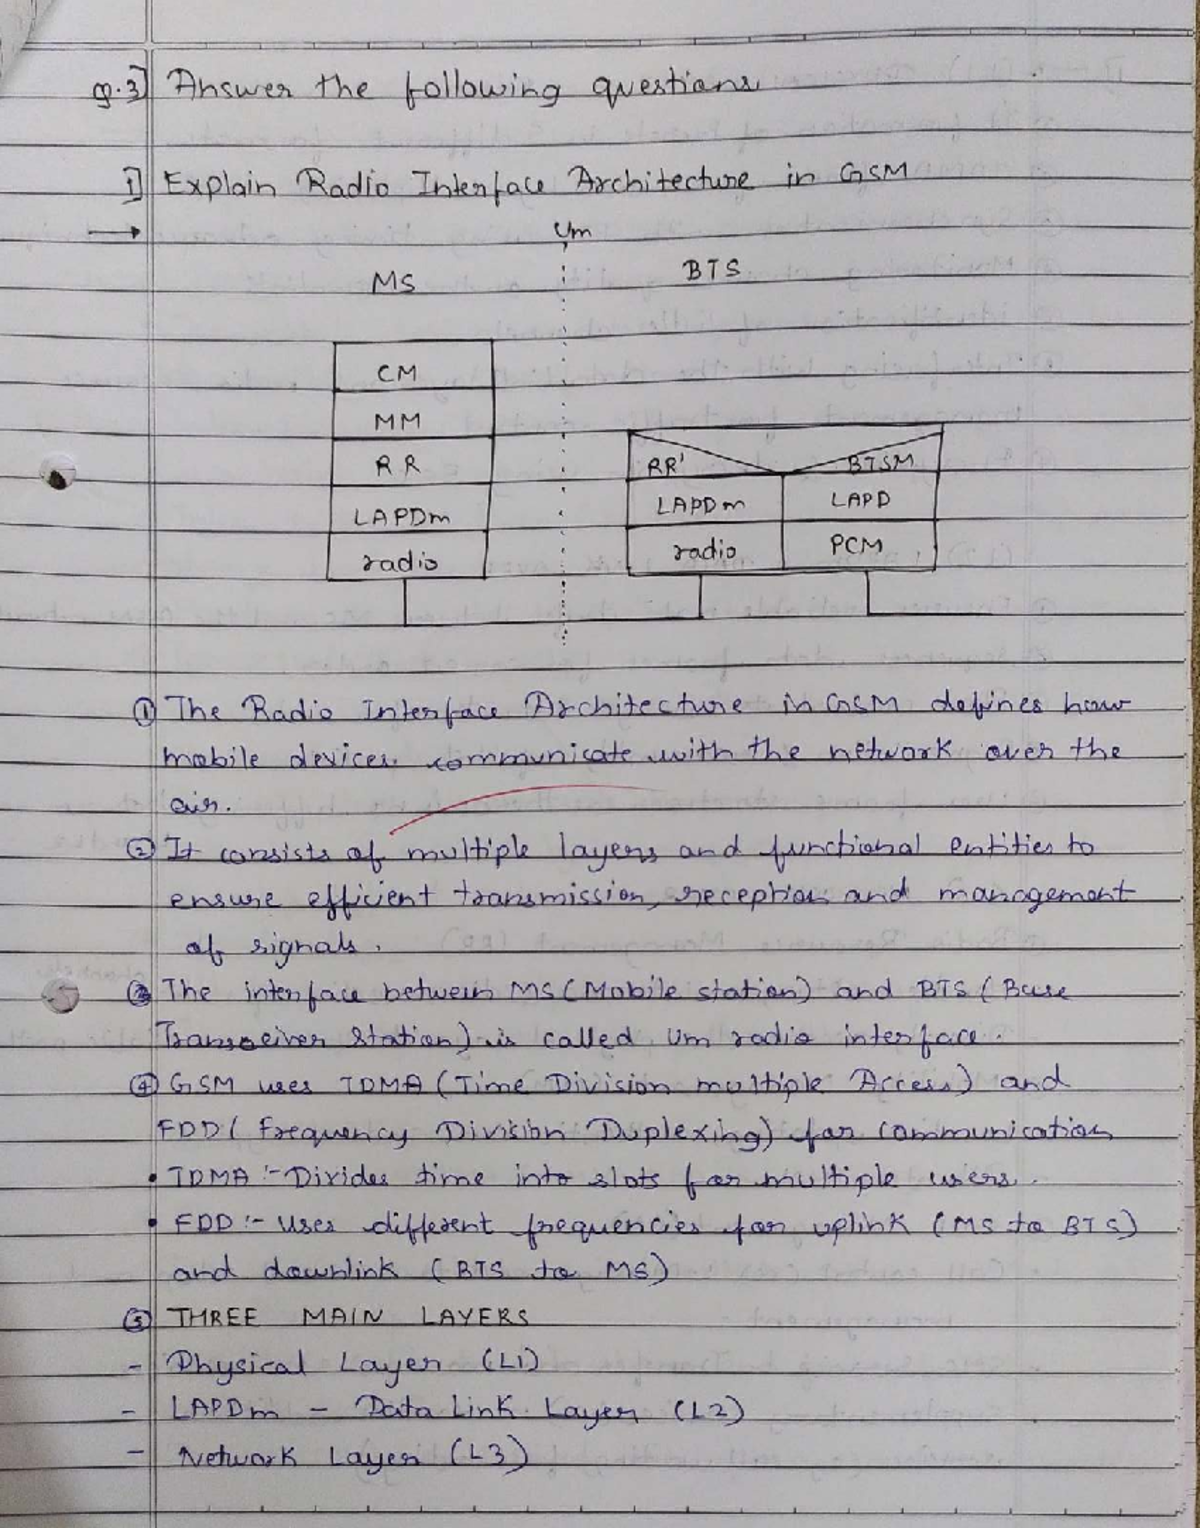 Q.3] Answer the following questions.
1] Explain Radio Interface Architecture in GSM
→
Um
MS
BTS
CM
MM
RR
LAPDm
radio
RR' BTSM
LAPDm LAPD
radio PCM
① The Radio Interface Architecture in GSM defines how
mobile devices communicate with the network over the
air.
② It consists of multiple layers and functional entities to
ensure efficient transmission, reception and management
of signals.
③ The interface between MS (Mobile station) and BTS (Base
Transceiver Station) is called Um radio interface.
④ GSM uses TDMA (Time Division multiple Access) and
FDD (Frequency Division Duplexing) for communication
• TDMA :- Divides time into slots for multiple users.
• FDD :- Uses different frequencies for uplink (MS to BTS)
and downlink (BTS to MS)
⑤ THREE MAIN LAYERS
- Physical Layer (L1)
- LAPDm - Data Link Layer (L2)
- Network Layer (L3)